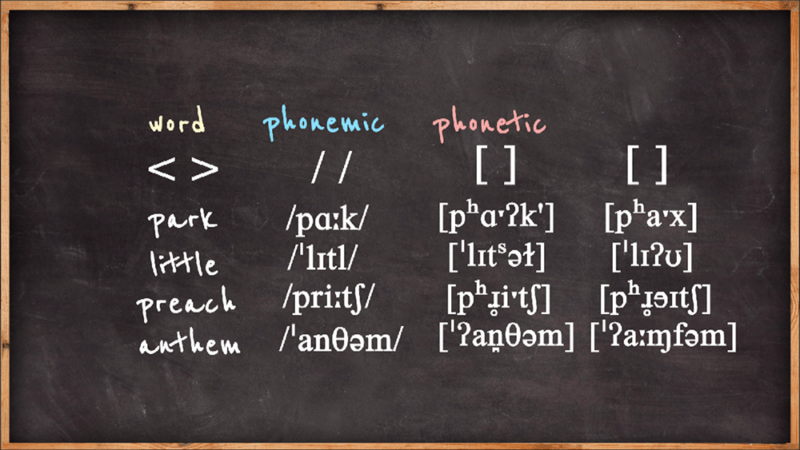 word phonemic phonetic
< > / / [ ] [ ]
park /pɑːk/ [pʰɑˑʔk'] [pʰaˑx]
little /ˈlɪtl/ [ˈlɪtˢəɫ] [ˈlɪʔʊ]
preach /priːtʃ/ [pʰɹ̥iˑtʃ] [pʰɹ̥ɘɪtʃ]
anthem /ˈanθəm/ [ˈʔan̪θəm] [ˈʔaːɱfəm]